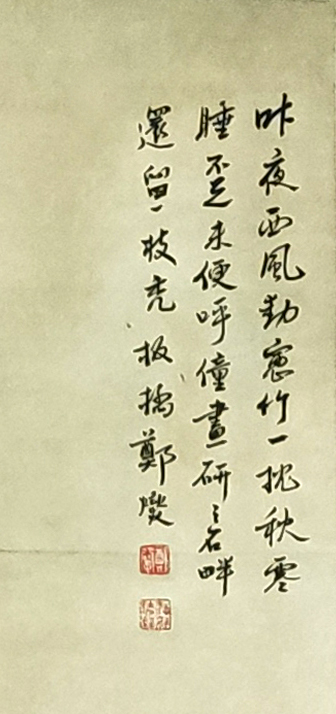 昨夜西風動窻竹一枕秋
睡不足未便呼僮畫研畔
還留一枝禿 板橋鄭燮